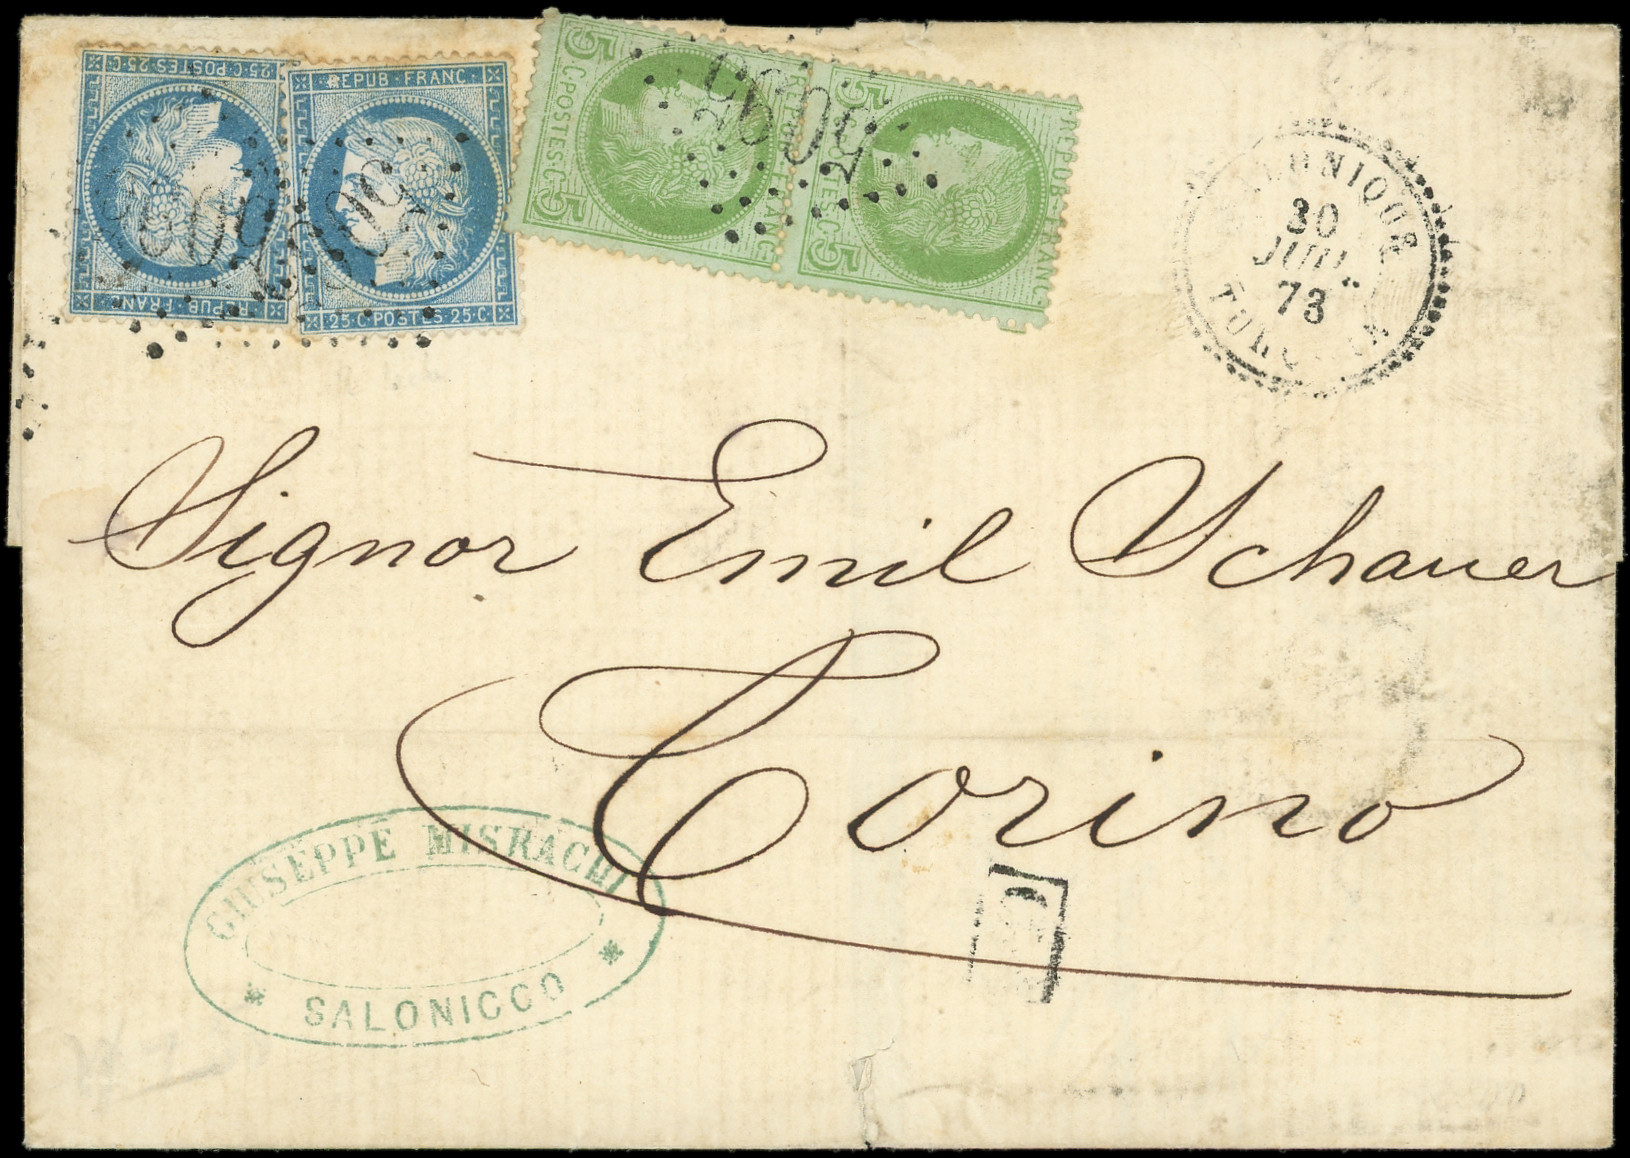 25·C·POSTES 25·C·
REPUB·FRANC·
REPUB·FRANC·
25·C·POSTES 25·C·
5 C·POSTES·C·5
REPUB·FRANC·
5 C·POSTES·C·5
REPUB·FRANC·
SALONIQUE
30
JUIL.
73
Signor Emil Schauer
Torino
GIUSEPPE MISRACHI
* SALONICCO *